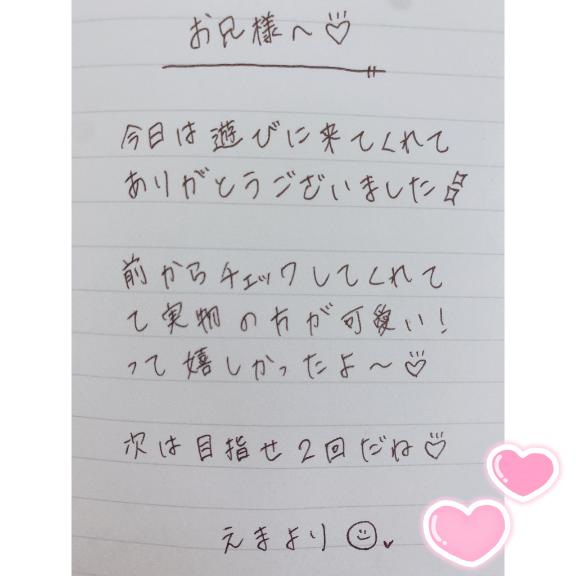 お兄様へ♡
今日は遊びに来てくれて
ありがとうございました
前からチェックしてくれて
て実物の方が可愛い!
って嬉しかったよ〜♡
次は目指せ2回だね♡
えまより